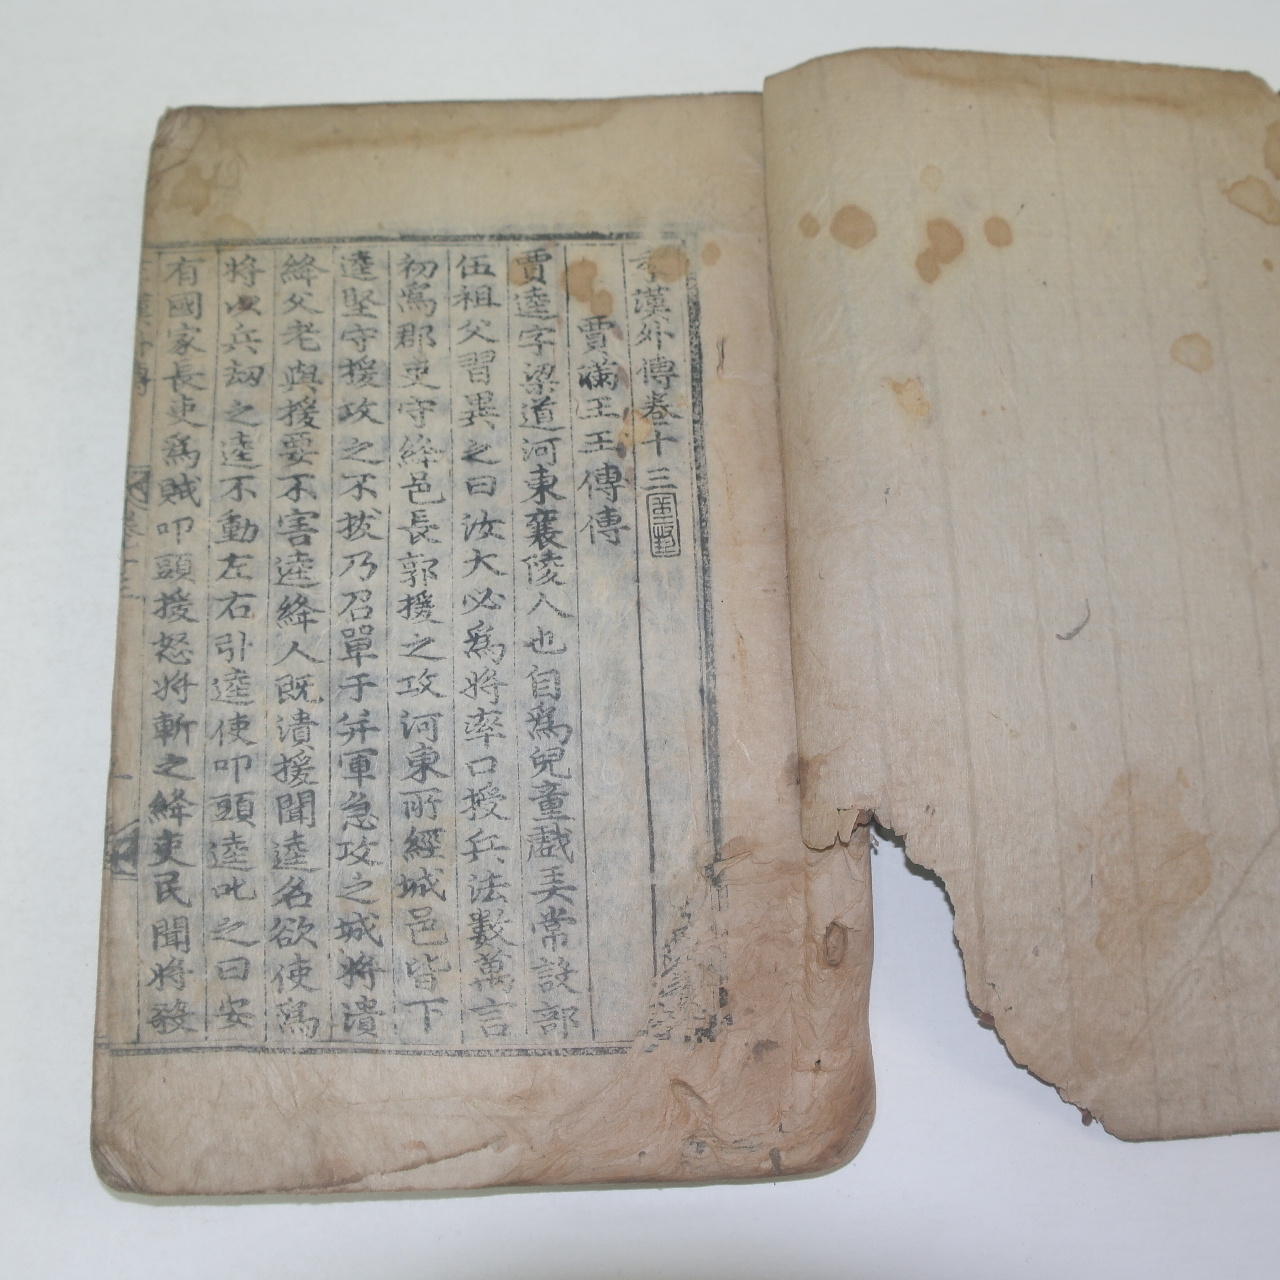 季漢外傳卷十三
賈滿王王傳傳
賈逵字梁道河東襄陵人也自爲兒童戱美常設部
伍祖父習異之曰汝大必爲將率口授兵法數萬言
初爲郡吏守絳邑長郭援之攻河東所經城邑皆下
逵堅守援攻之不拔乃召單于并軍急攻之城將潰
絳父老與援要不害逵絳人旣潰援聞逵名欲使爲
將以兵刼之逵不動左右引逵使叩頭逵叱之曰安
有國家長吏爲賊叩頭援怒將斬之絳吏民聞將殺
季漢外傳
卷十三
一